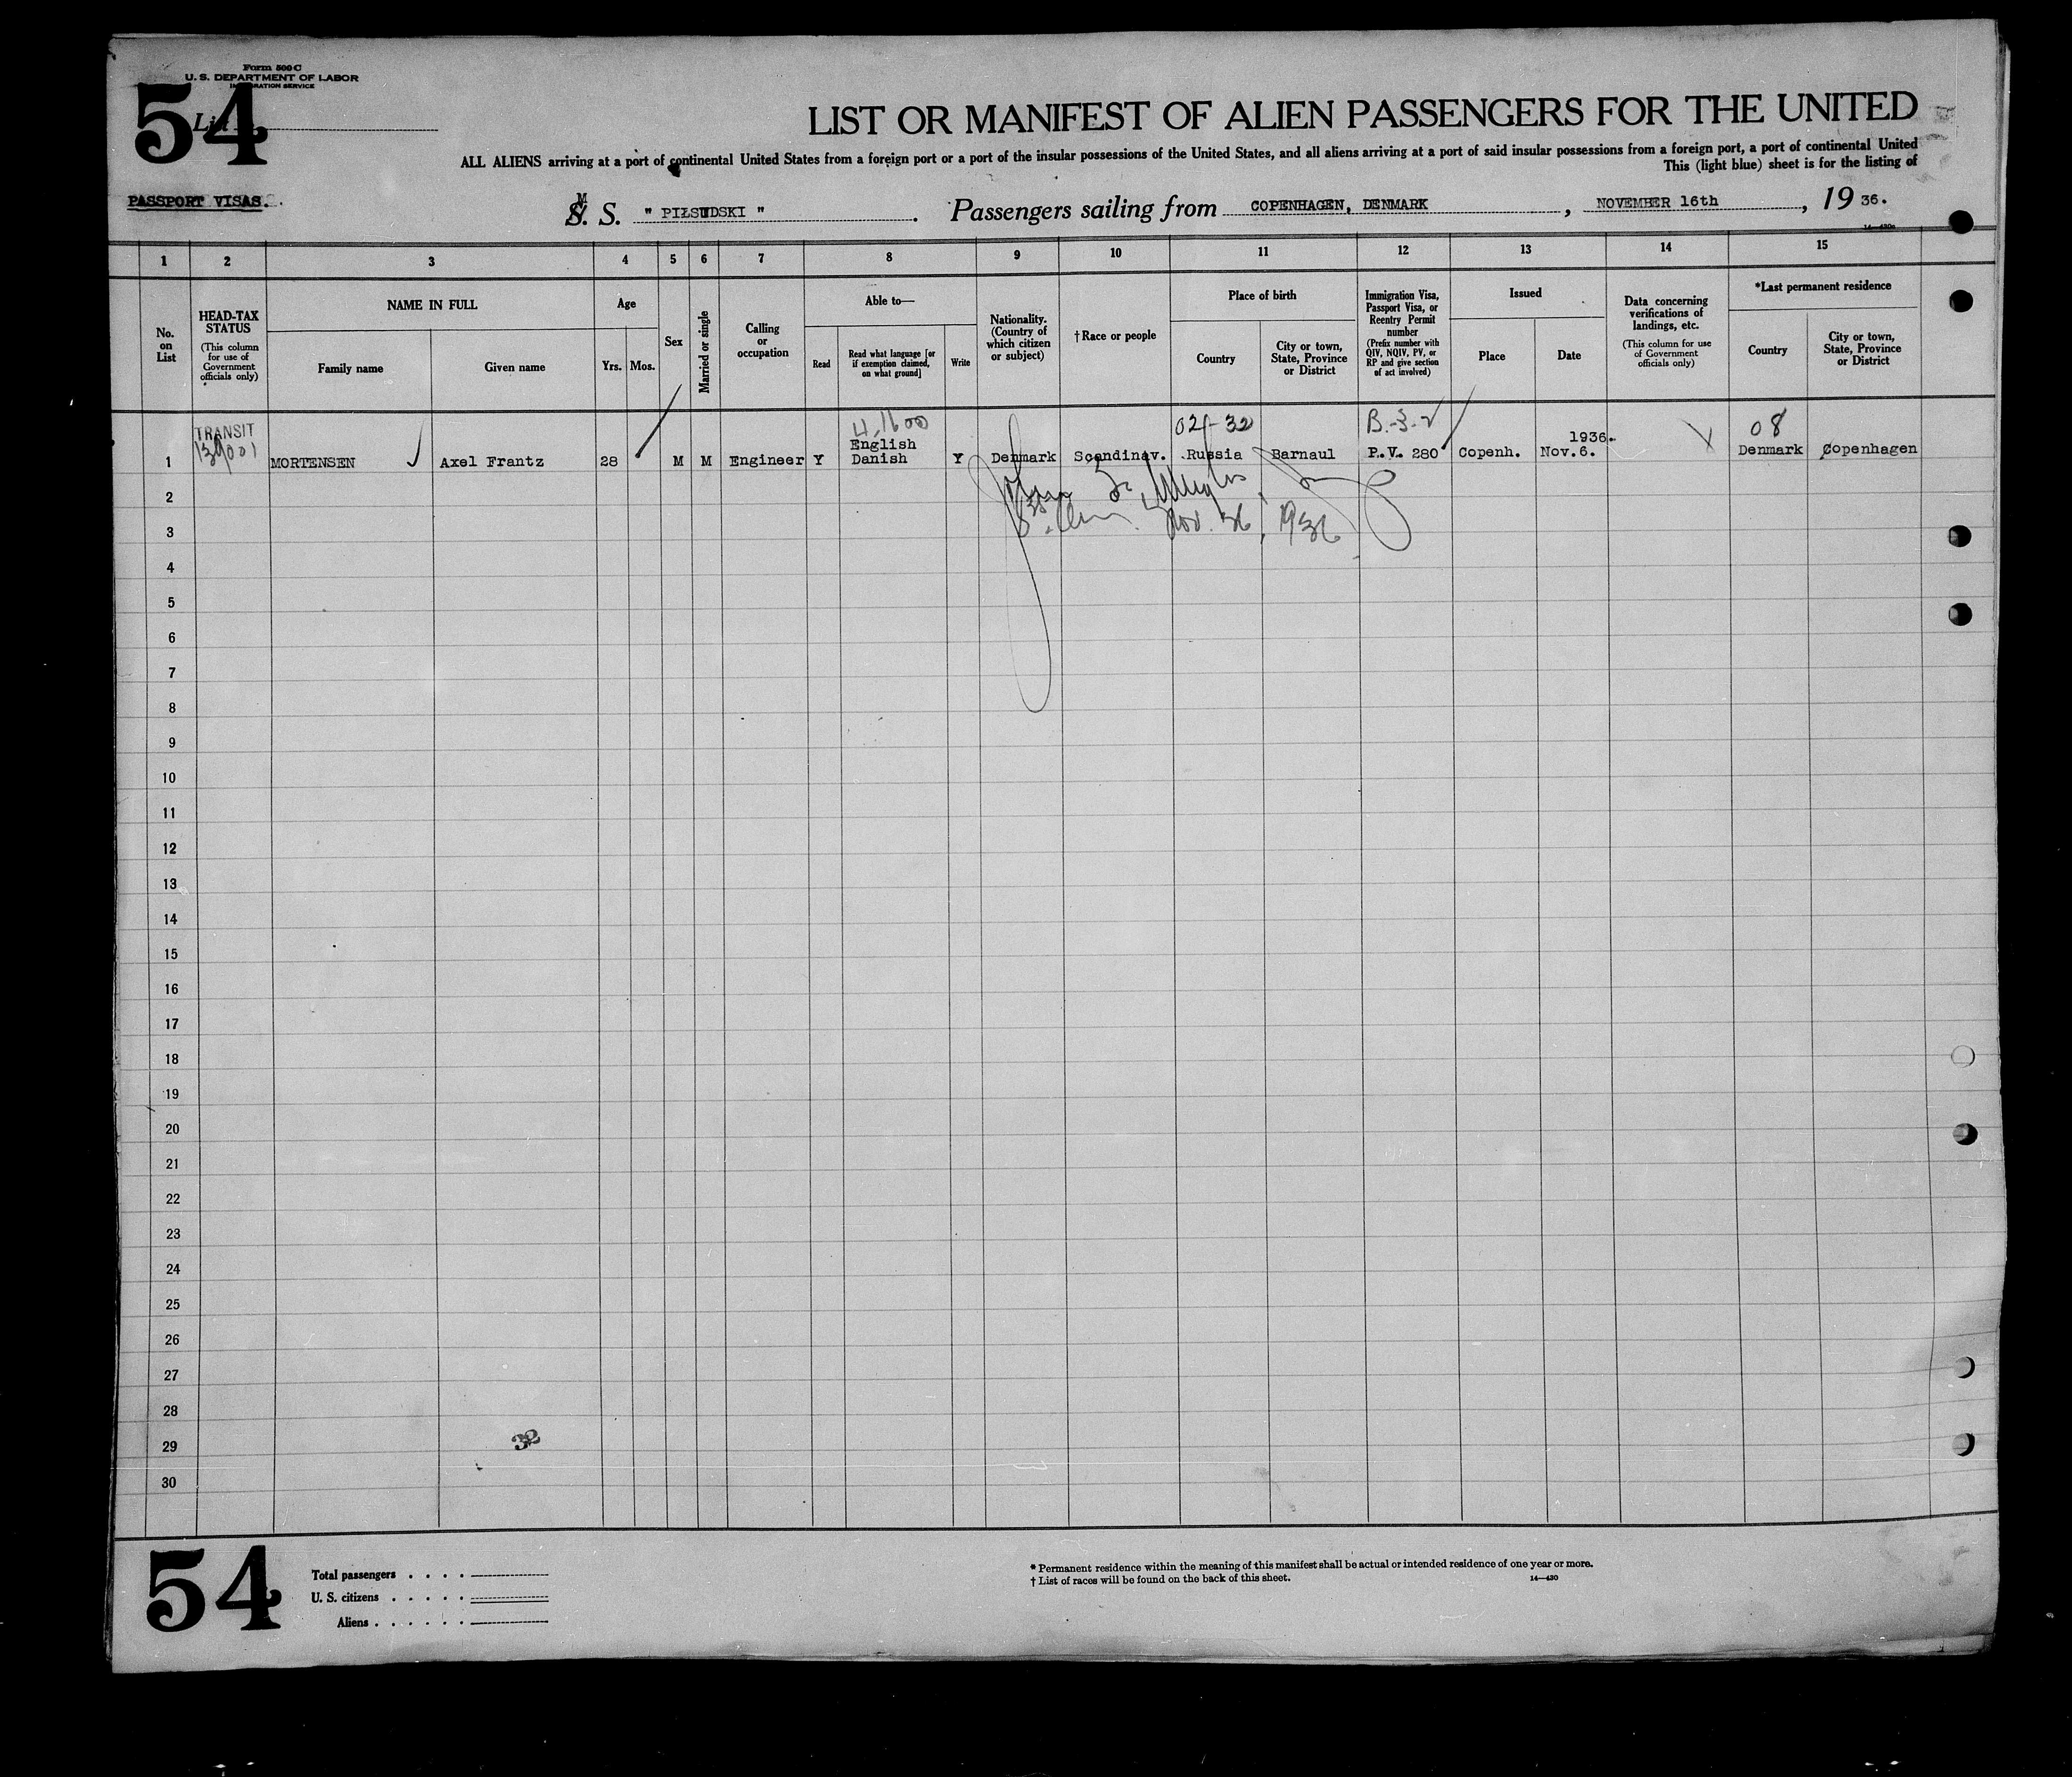 Form 500 C
U. S. DEPARTMENT OF LABOR
IMMIGRATION SERVICE
54
List
LIST OR MANIFEST OF ALIEN PASSENGERS FOR THE UNITED
ALL ALIENS arriving at a port of continental United States from a foreign port or a port of the insular possessions of the United States, and all aliens arriving at a port of said insular possessions from a foreign port, a port of continental United
This (light blue) sheet is for the listing of
PASSPORT VISAS.
M. S. " PIŁSUDSKI " . Passengers sailing from COPENHAGEN, DENMARK , NOVEMBER 16th , 19 36.
1 2 3 4 5 6 7 8 9 10 11 12 13 14 15
No. on List
HEAD-TAX STATUS
(This column for use of Government officials only)
NAME IN FULL
Family name
Given name
Age
Yrs. Mos.
Sex
Married or single
Calling or occupation
Able to—
Read
Read what language [or if exemption claimed, on what ground]
Write
Nationality. (Country of which citizen or subject)
† Race or people
Place of birth
Country
City or town, State, Province or District
Immigration Visa, Passport Visa, or Reentry Permit number
(Prefix number with QIV, NQIV, PV, or RP and give section of act involved)
Issued
Place
Date
Data concerning verifications of landings, etc.
(This column for use of Government officials only)
*Last permanent residence
Country
City or town, State, Province or District
TRANSIT
02-32 B.-3-2 08
English 1936.
1 MORTENSEN Axel Frantz 28 M M Engineer Y Danish Y Denmark Scandinav. Russia Barnaul P.V. 280 Copenh. Nov.6. Denmark Copenhagen
2
Nov. 26, 1936
3
4
5
6
7
8
9
10
11
12
13
14
15
16
17
18
19
20
21
22
23
24
25
26
27
28
29
32
30
54
Total passengers . . . .
U. S. citizens . . . . .
Aliens . . . . . .
* Permanent residence within the meaning of this manifest shall be actual or intended residence of one year or more.
† List of races will be found on the back of this sheet.
14—430